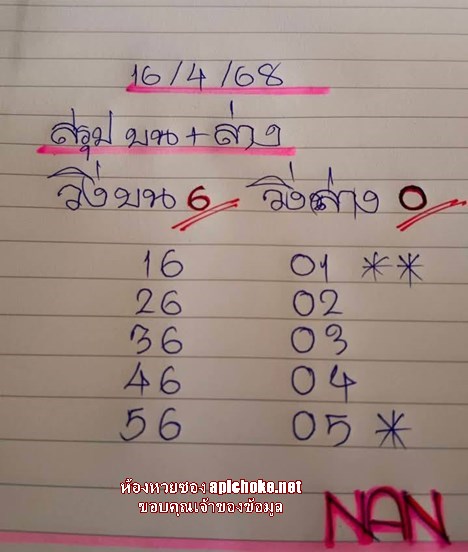 16/4/68
สรุป บน + ล่าง
วิ่งบน 6 วิ่งล่าง 0
16 01 **
26 02
36 03
46 04
56 05 *
ห้องหวยซอง apichoke.net
ขอบคุณเจ้าของข้อมูล
NAN